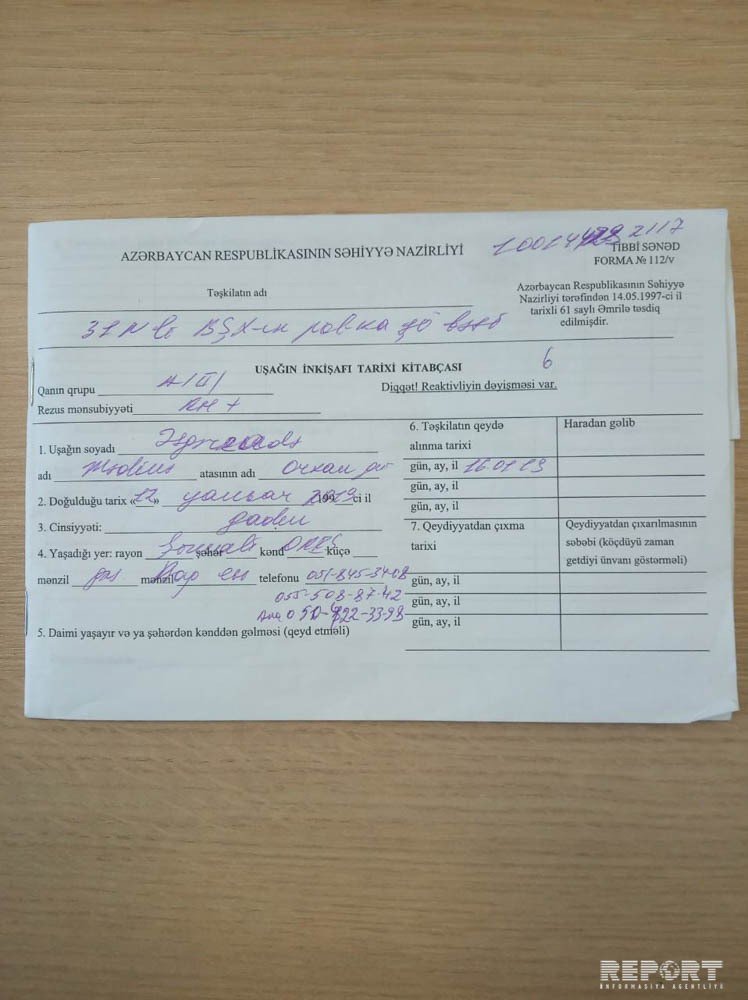 10014423 2117
AZƏRBAYCAN RESPUBLİKASININ SƏHİYYƏ NAZİRLİYİ
TİBBİ SƏNƏD
FORMA № 112/v
Təşkilatın adı
Azərbaycan Respublikasının Səhiyyə
Nazirliyi tərəfindən 14.05.1997-ci il
tarixli 61 saylı Əmrilə təsdiq
edilmişdir.
31 N li BŞX-ın
UŞAĞIN İNKİŞAFI TARİXİ KİTABÇASI
6
Qanın qrupu A/II/
Diqqət! Reaktivliyin dəyişməsi var.
Rezus mənsubiyyəti RH +
1. Uşağın soyadı
adı atasının adı Orxan
2. Doğulduğu tarix «12» yanvar 2019 ci il
3. Cinsiyyəti:
4. Yaşadığı yer: rayon şəhər kənd küçə
mənzil mənzil telefonu 051-845-34-08
055-508-87-42
Ana 050-422-33-98
5. Daimi yaşayır və ya şəhərdən kənddən gəlməsi (qeyd etməli)
6. Təşkilatın qeydə
alınma tarixi
Haradan gəlib
gün, ay, il 16 01 19
gün, ay, il
gün, ay, il
7. Qeydiyyatdan çıxma
tarixi
Qeydiyyatdan çıxarılmasının
səbəbi (köçdüyü zaman
getdiyi ünvanı göstərməli)
gün, ay, il
gün, ay, il
gün, ay, il
REPORT
İNFORMASİYA AGENTLİYİ